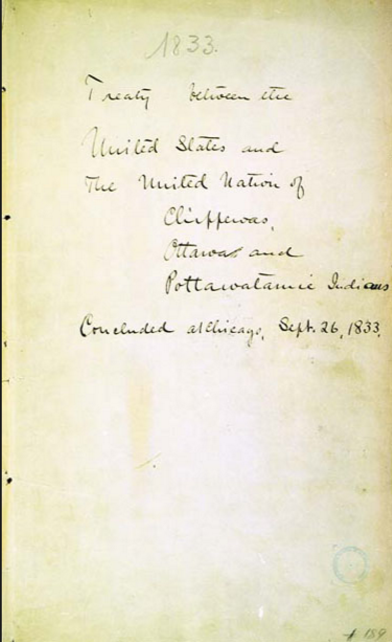 1833.
Treaty between the
United States and
The United Nation of
Chippewas,
Ottawas and
Pottawatamie Indians
Concluded at Chicago, Sept. 26, 1833.